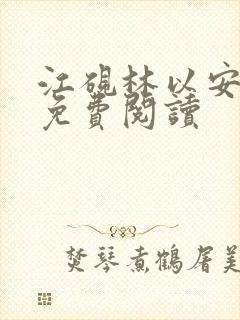 江硯林以安
免費閱讀
焚琴煮鶴屠美